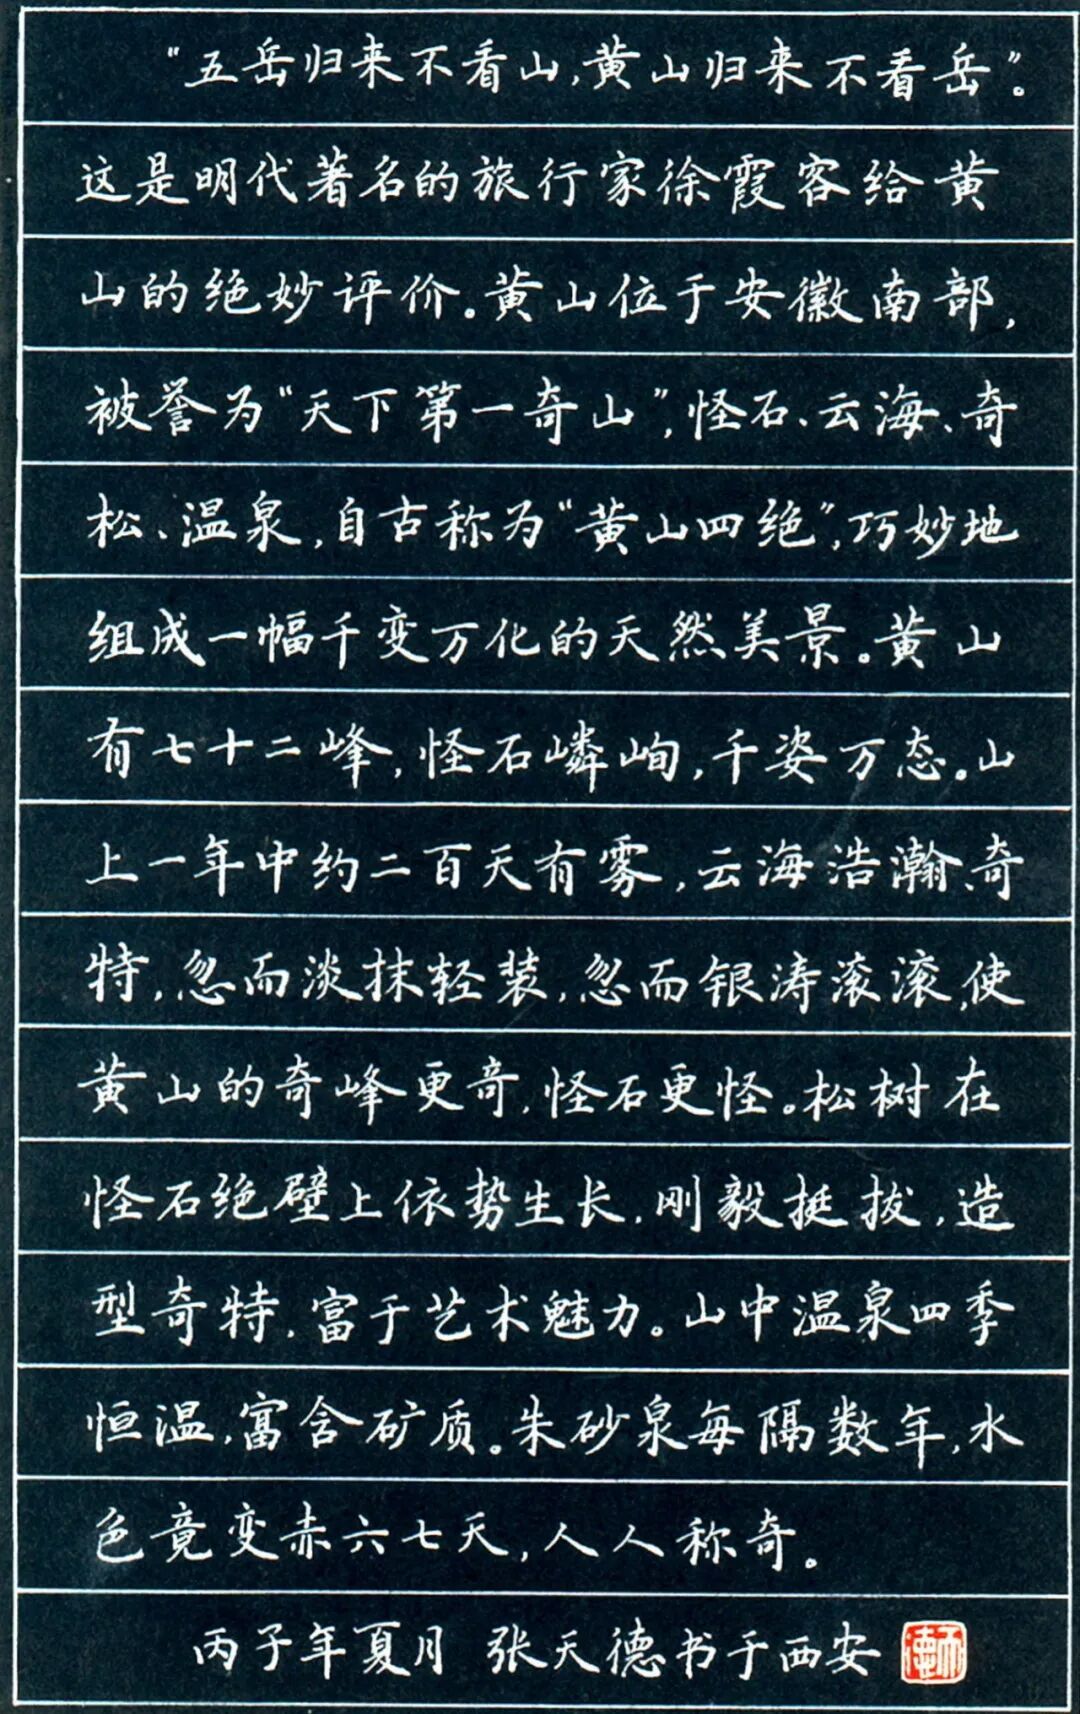 “五岳归来不看山，黄山归来不看岳”。
这是明代著名的旅行家徐霞客给黄
山的绝妙评价。黄山位于安徽南部，
被誉为“天下第一奇山”，怪石、云海、奇
松、温泉，自古称为“黄山四绝”，巧妙地
组成一幅千变万化的天然美景。黄山
有七十二峰，怪石嶙峋，千姿万态。山
上一年中约二百天有雾，云海浩瀚、奇
特，忽而淡抹轻装，忽而银涛滚滚，使
黄山的奇峰更奇，怪石更怪。松树在
怪石绝壁上依势生长，刚毅挺拔，造
型奇特，富于艺术魅力。山中温泉四季
恒温，富含矿质。朱砂泉每隔数年，水
色竟变赤六七天，人人称奇。
丙子年夏月 张天德书于西安